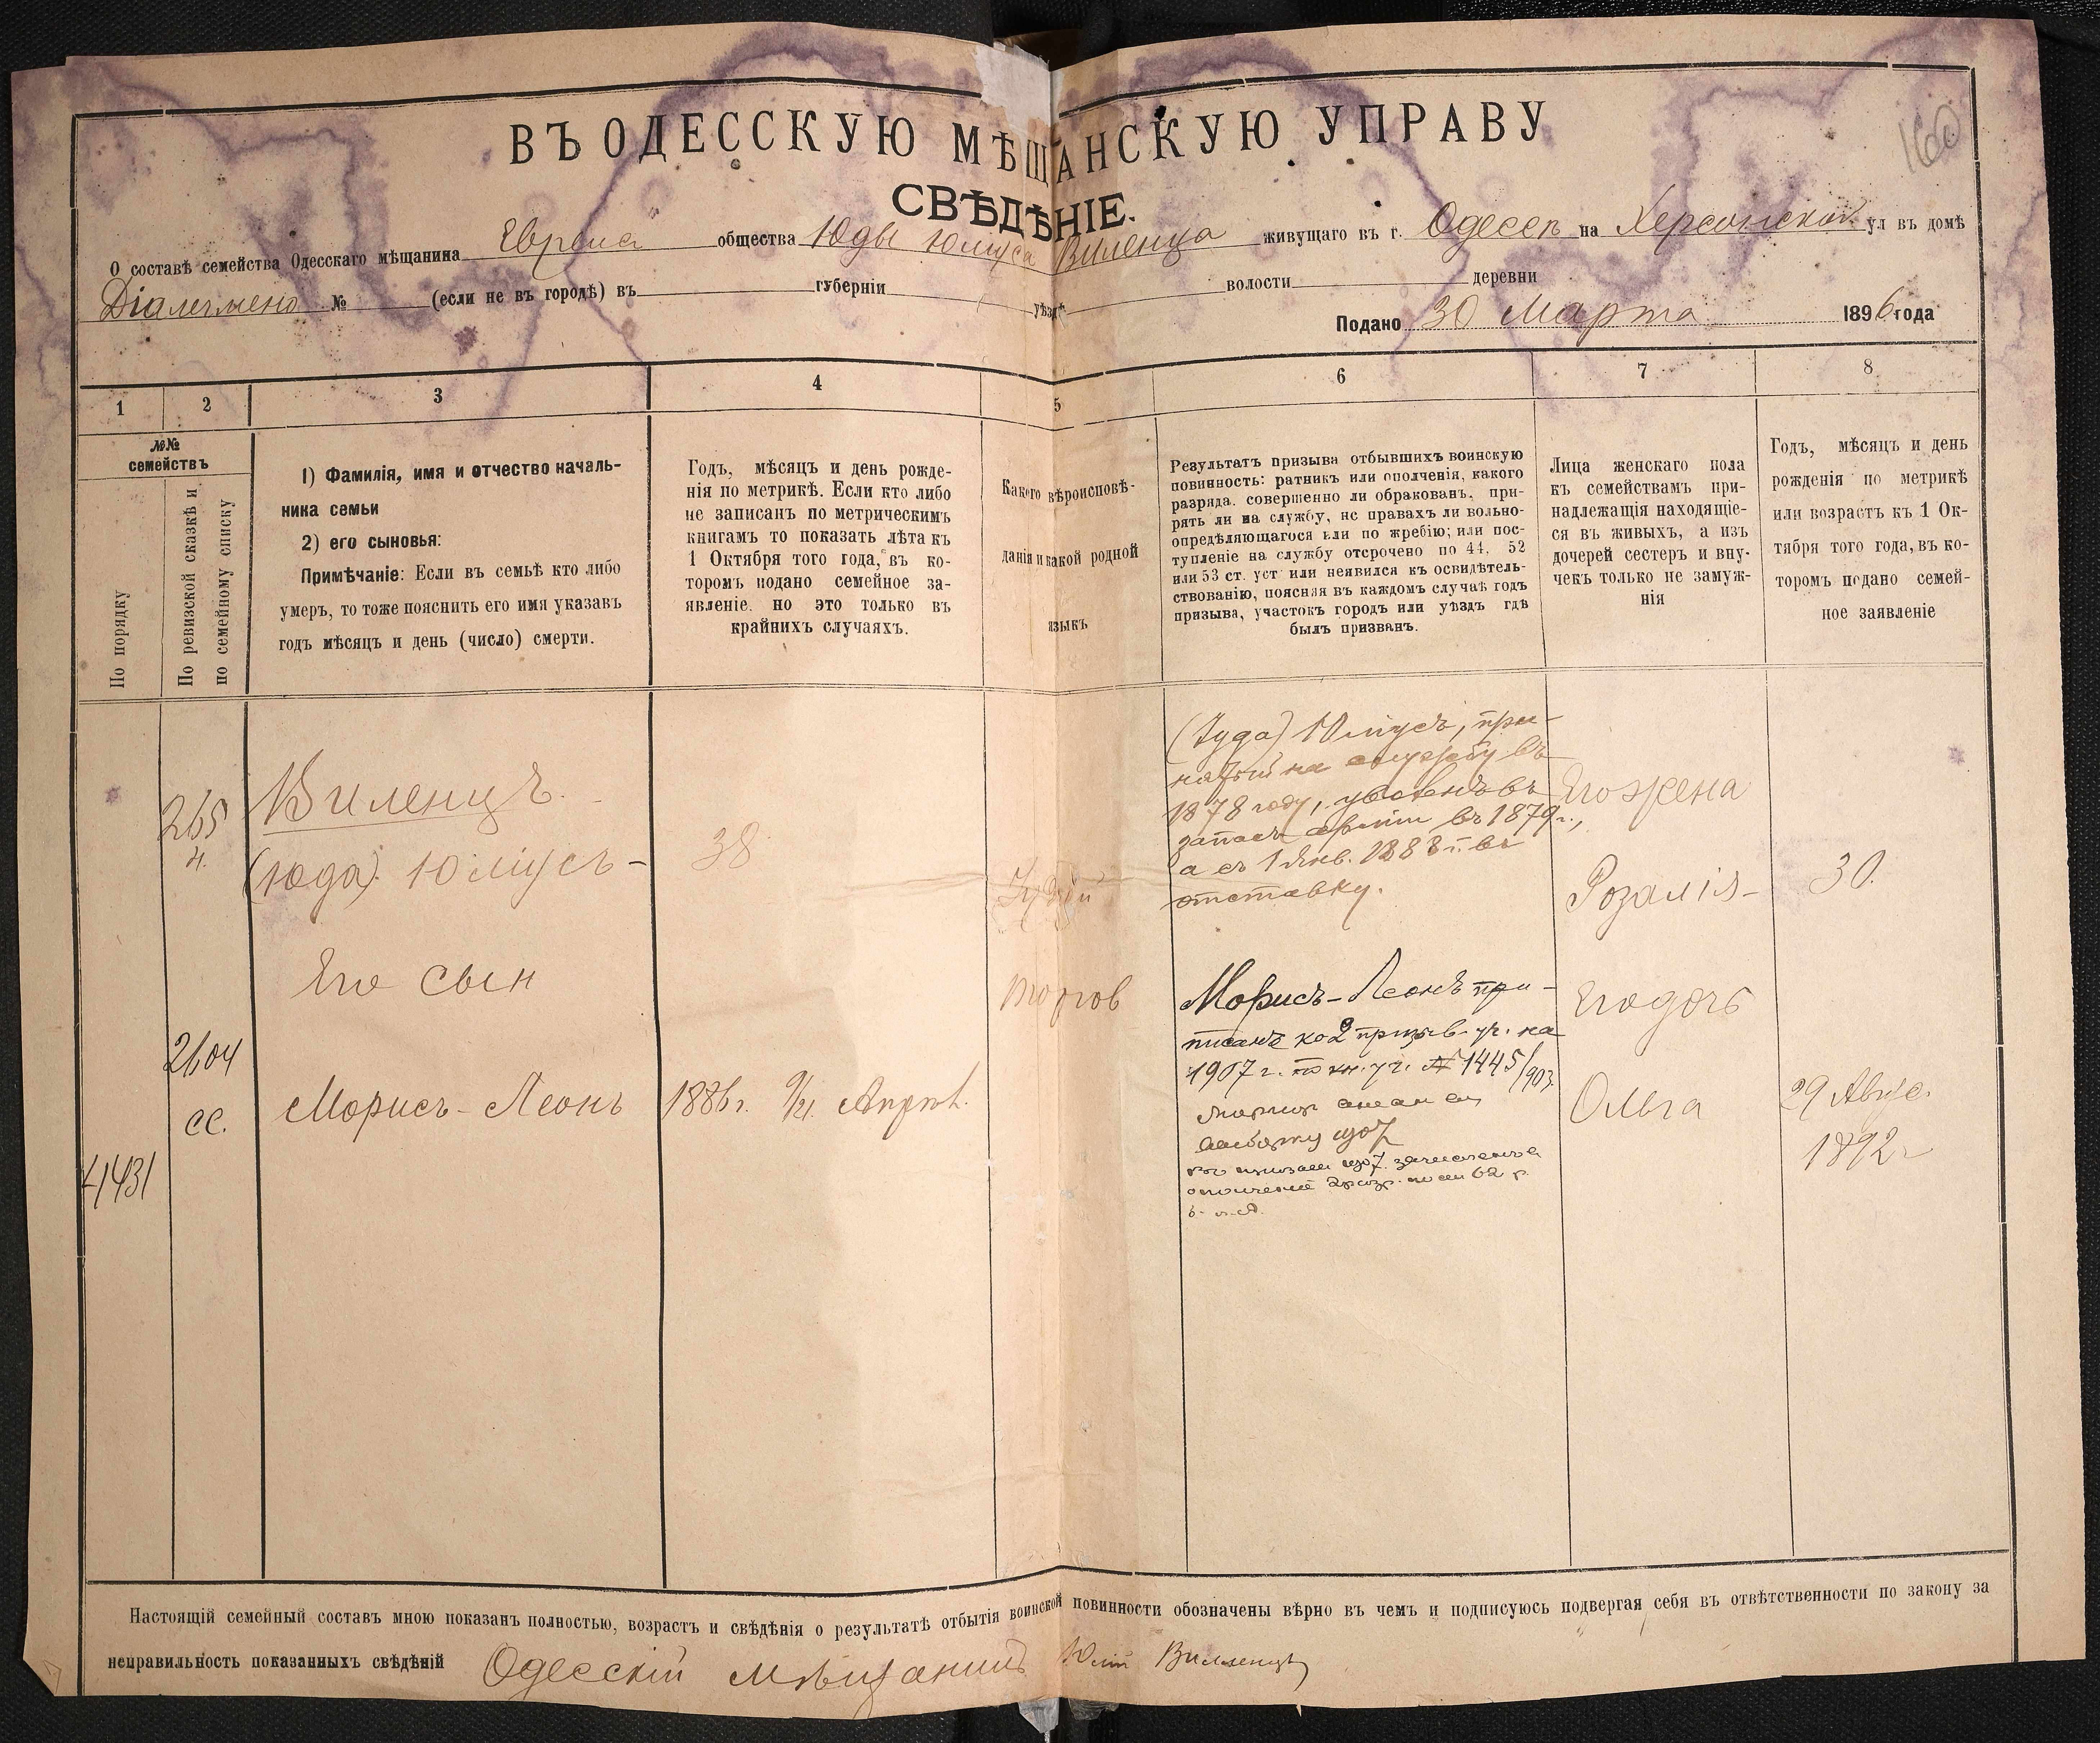 160
ВЪ ОДЕССКУЮ МѢЩАНСКУЮ УПРАВУ
СВѢДѢНІЕ.
О составѣ семейства Одесскаго мѣщанина Еврея общества Юды Юлиуса Виленца живущаго въ г. Одессѣ на Херсонской ул въ домѣ
№ (если не въ городѣ) въ губерніи уѣздѣ волости деревни
Подано 30 Марта 1896 года
1
2
3
4
5
6
7
8
№№
семействъ
По порядку
По ревизской сказкѣ и
по семейному списку
1) Фамилія, имя и отчество началь-
ника семьи
2) его сыновья:
Примѣчаніе: Если въ семьѣ кто либо
умеръ, то тоже пояснить его имя указавъ
годъ мѣсяцъ и день (число) смерти.
Годъ, мѣсяцъ и день рожде-
нія по метрикѣ. Если кто либо
не записанъ по метрическимъ
книгамъ то показать лѣта къ
1 Октября того года, въ ко-
торомъ подано семейное за-
явленіе. но это только въ
крайнихъ случаяхъ.
Какого вѣроисповѣ-
данія и какой родной
языкъ
Результатъ призыва отбывшихъ воинскую
повинность: ратникъ или ополченія, какого
разряда. совершенно ли обракованъ, при-
нятъ ли на службу, на правахъ ли вольно-
опредѣляющагося или по жребію; или пос-
тупленіе на службу отсрочено по 44, 52
или 53 ст. уст или неявился къ освидѣтель-
ствованію, поясняя въ каждомъ случаѣ годъ
призыва, участокъ городъ или уѣздъ гдѣ
былъ призванъ.
Лица женскаго пола
къ семействамъ при-
надлежащія находящіе-
ся въ живыхъ, а изъ
дочерей сестеръ и вну-
чекъ только не замуж-
нія
Годъ, мѣсяцъ и день
рожденія по метрикѣ
или возрастъ къ 1 Ок-
тября того года, въ ко-
торомъ подано семей-
ное заявленіе
265
н.
Виленцъ.
(Юда) Юліусъ -
38
Іудей
(Іуда) Юліусъ, при-
нятый на службу въ
1878 году, уволенъ въ
запасъ арміи въ 1879 г.,
а съ 1 Янв. 1883 г. въ
отставку.
Его жена
Розалія -
30.
Его сын
2604
сс.
Морисъ - Леонъ
1886 г. 9/21 Апрѣл.
Морисъ-Леонъ при-
писанъ ко 2 призыв. уч. на
1907 г. по кн. уч. № 1445/903.
Его дочь
Ольга
29 Авгус.
1892 г
4431
1907
1907 зачисленъ в
ополченіе 2 разр. 62
Настоящій семейный составъ мною показанъ полностью, возрастъ и свѣдѣнія о результатѣ отбытія воинской повинности обозначены вѣрно въ чемъ и подписуюсь подвергая себя въ отвѣтственности по закону за
неправильность показанныхъ свѣдѣній Одесскій мѣщанинъ Юлій Виленцъ